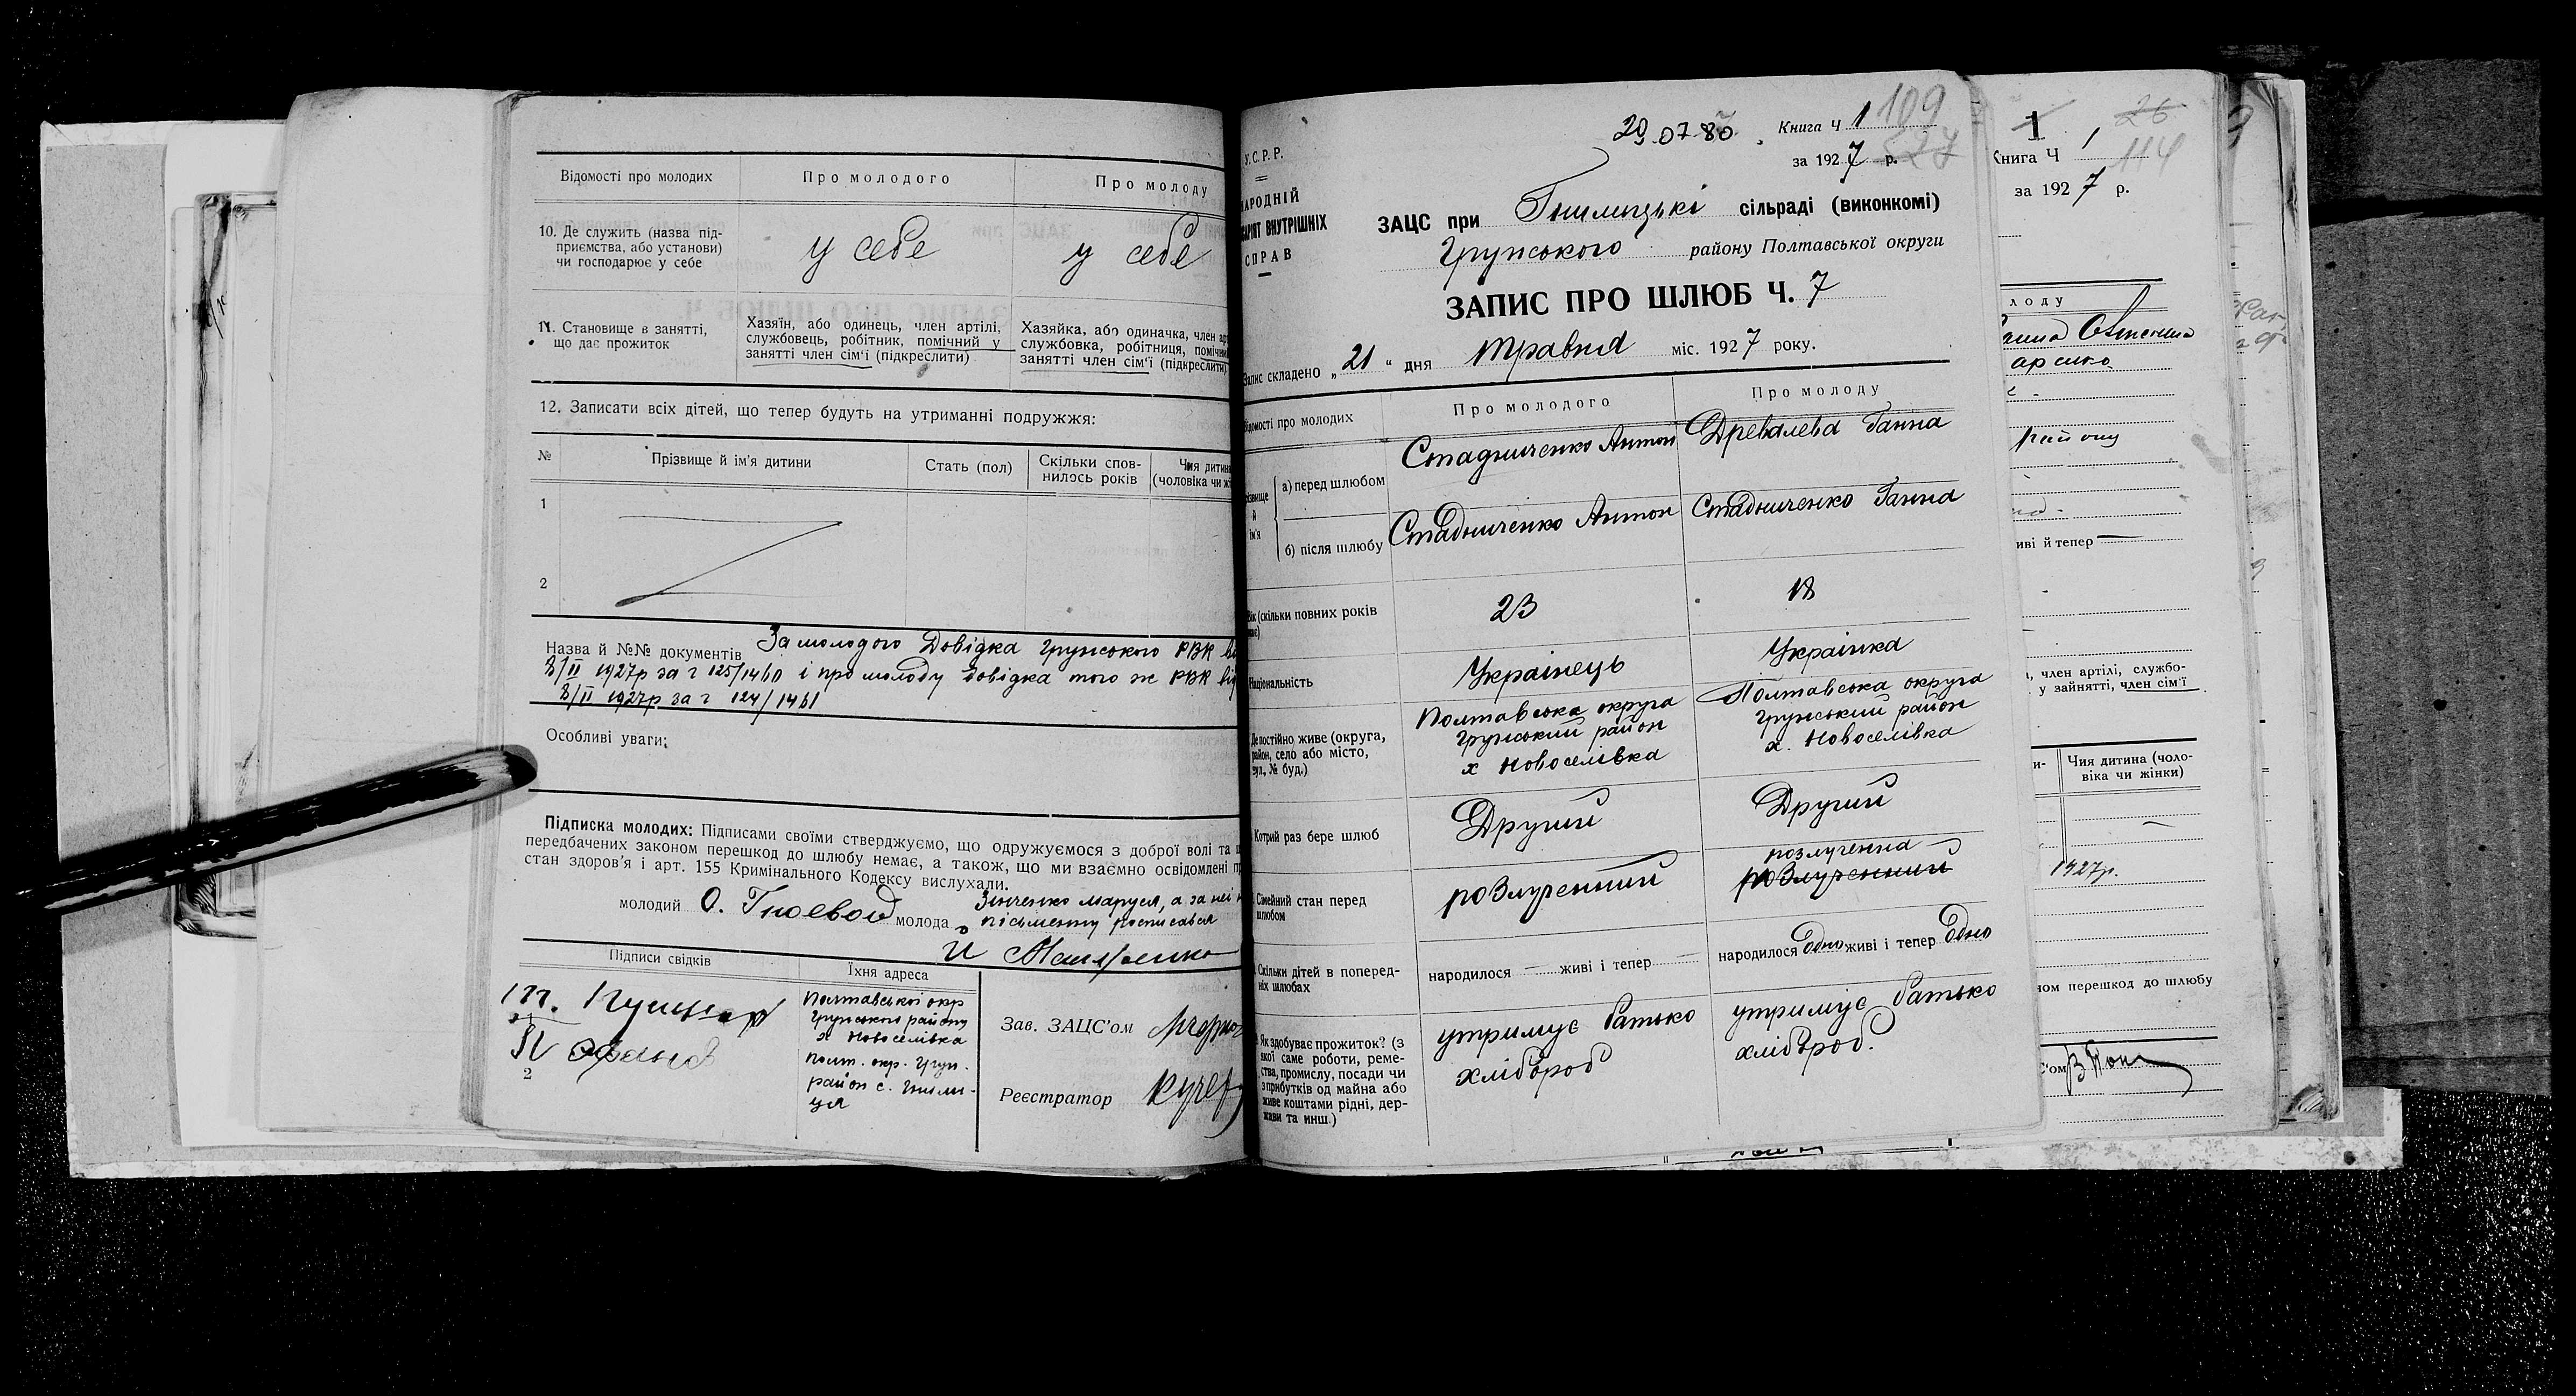 Відомості про молодих
Про молодого
Про молоду
10. Де служить (назва під-
приємства, або установи)
чи господарює у себе
у себе
у себе
11. Становище в занятті,
що дає прожиток
Хазяїн, або одинець, член артілі,
службовець, робітник, помічний у
занятті член сім'ї (підкреслити)
Хазяйка, або одиначка, член
службовка, робітниця,
занятті член сім'ї (підкреслити)
12. Записати всіх дітей, що тепер будуть на утриманні подружжя:
№
Прізвище й ім'я дитини
Стать (пол)
Скільки спов-
нилось років
Чия
(чоловіка чи
1
2
Назва й №№ документів За молодого Довідка Грунського РВК
8/II 1927р за ч 125/1460 і про молоду довідка того ж РВК від
8/II 1927р за ч 124/1461
Особливі уваги:
Підписка молодих: Підписами своїми стверджуємо, що одружуємося з доброї волі та
передбачених законом перешкод до шлюбу немає, а також, що ми взаємно освідомлені
стан здоров'я і арт. 155 Кримінального Кодексу вислухали.
молодий О. Гноєвой молода Зінченко Маруся, а за неї
письменну росписався
Підписи свідків
Їхня адреса
Полтавської окр
Грунського району
х Новоселівка
Полт. окр. Грун.
район с. Гнили-
ця
2
Зав. ЗАЦС'ом
Реєстратор
У.С.Р.Р.
ВНУТРІШНІХ
СПРАВ
29.07.80
Книга Ч 1 109
за 1927 р.
ЗАЦС при Гнилицькі сільраді (виконкомі)
Грунського району Полтавської округи
ЗАПИС ПРО ШЛЮБ Ч. 7
Запис складено „21“ дня травня міс. 1927 року.
Відомості про молодих
Про молодого
Про молоду
а) перед шлюбом
Стадниченко Антон
Древалева Ганна
й
ім'я
б) після шлюбу
Стадниченко Антон
Стадниченко Ганна
Вік (скільки повних років
23
18
Національність
Українець
Українка
Де постійно живе (округа,
район, село або місто,
вул., № буд.)
Полтавська округа
Грунський район
х Новоселівка
Полтавська округа
Грунський район
х. Новоселівка
Котрий раз бере шлюб
Другий
Другий
Сімейний стан перед
шлюбом
розлученний
розлученна
розлученний
Скільки дітей в поперед-
ніх шлюбах
народилося — живі і тепер —
народилося одно живі і тепер одно
Як здобуває прожиток? (з
якої саме роботи, реме-
ства, промислу, посади чи
з прибутків од майна або
живе коштами рідні, дер-
жави та инш.)
утримує батько
хлібороб
утримує батько
хлібороб.
1
26
Книга Ч 1
114
за 1927 р.
лоду
району
иві й тепер —
, член артілі, службо-
у зайнятті, член сім'ї
Чия дитина (чоло-
віка чи жінки)
1927р.
ном перешкод до шлюбу